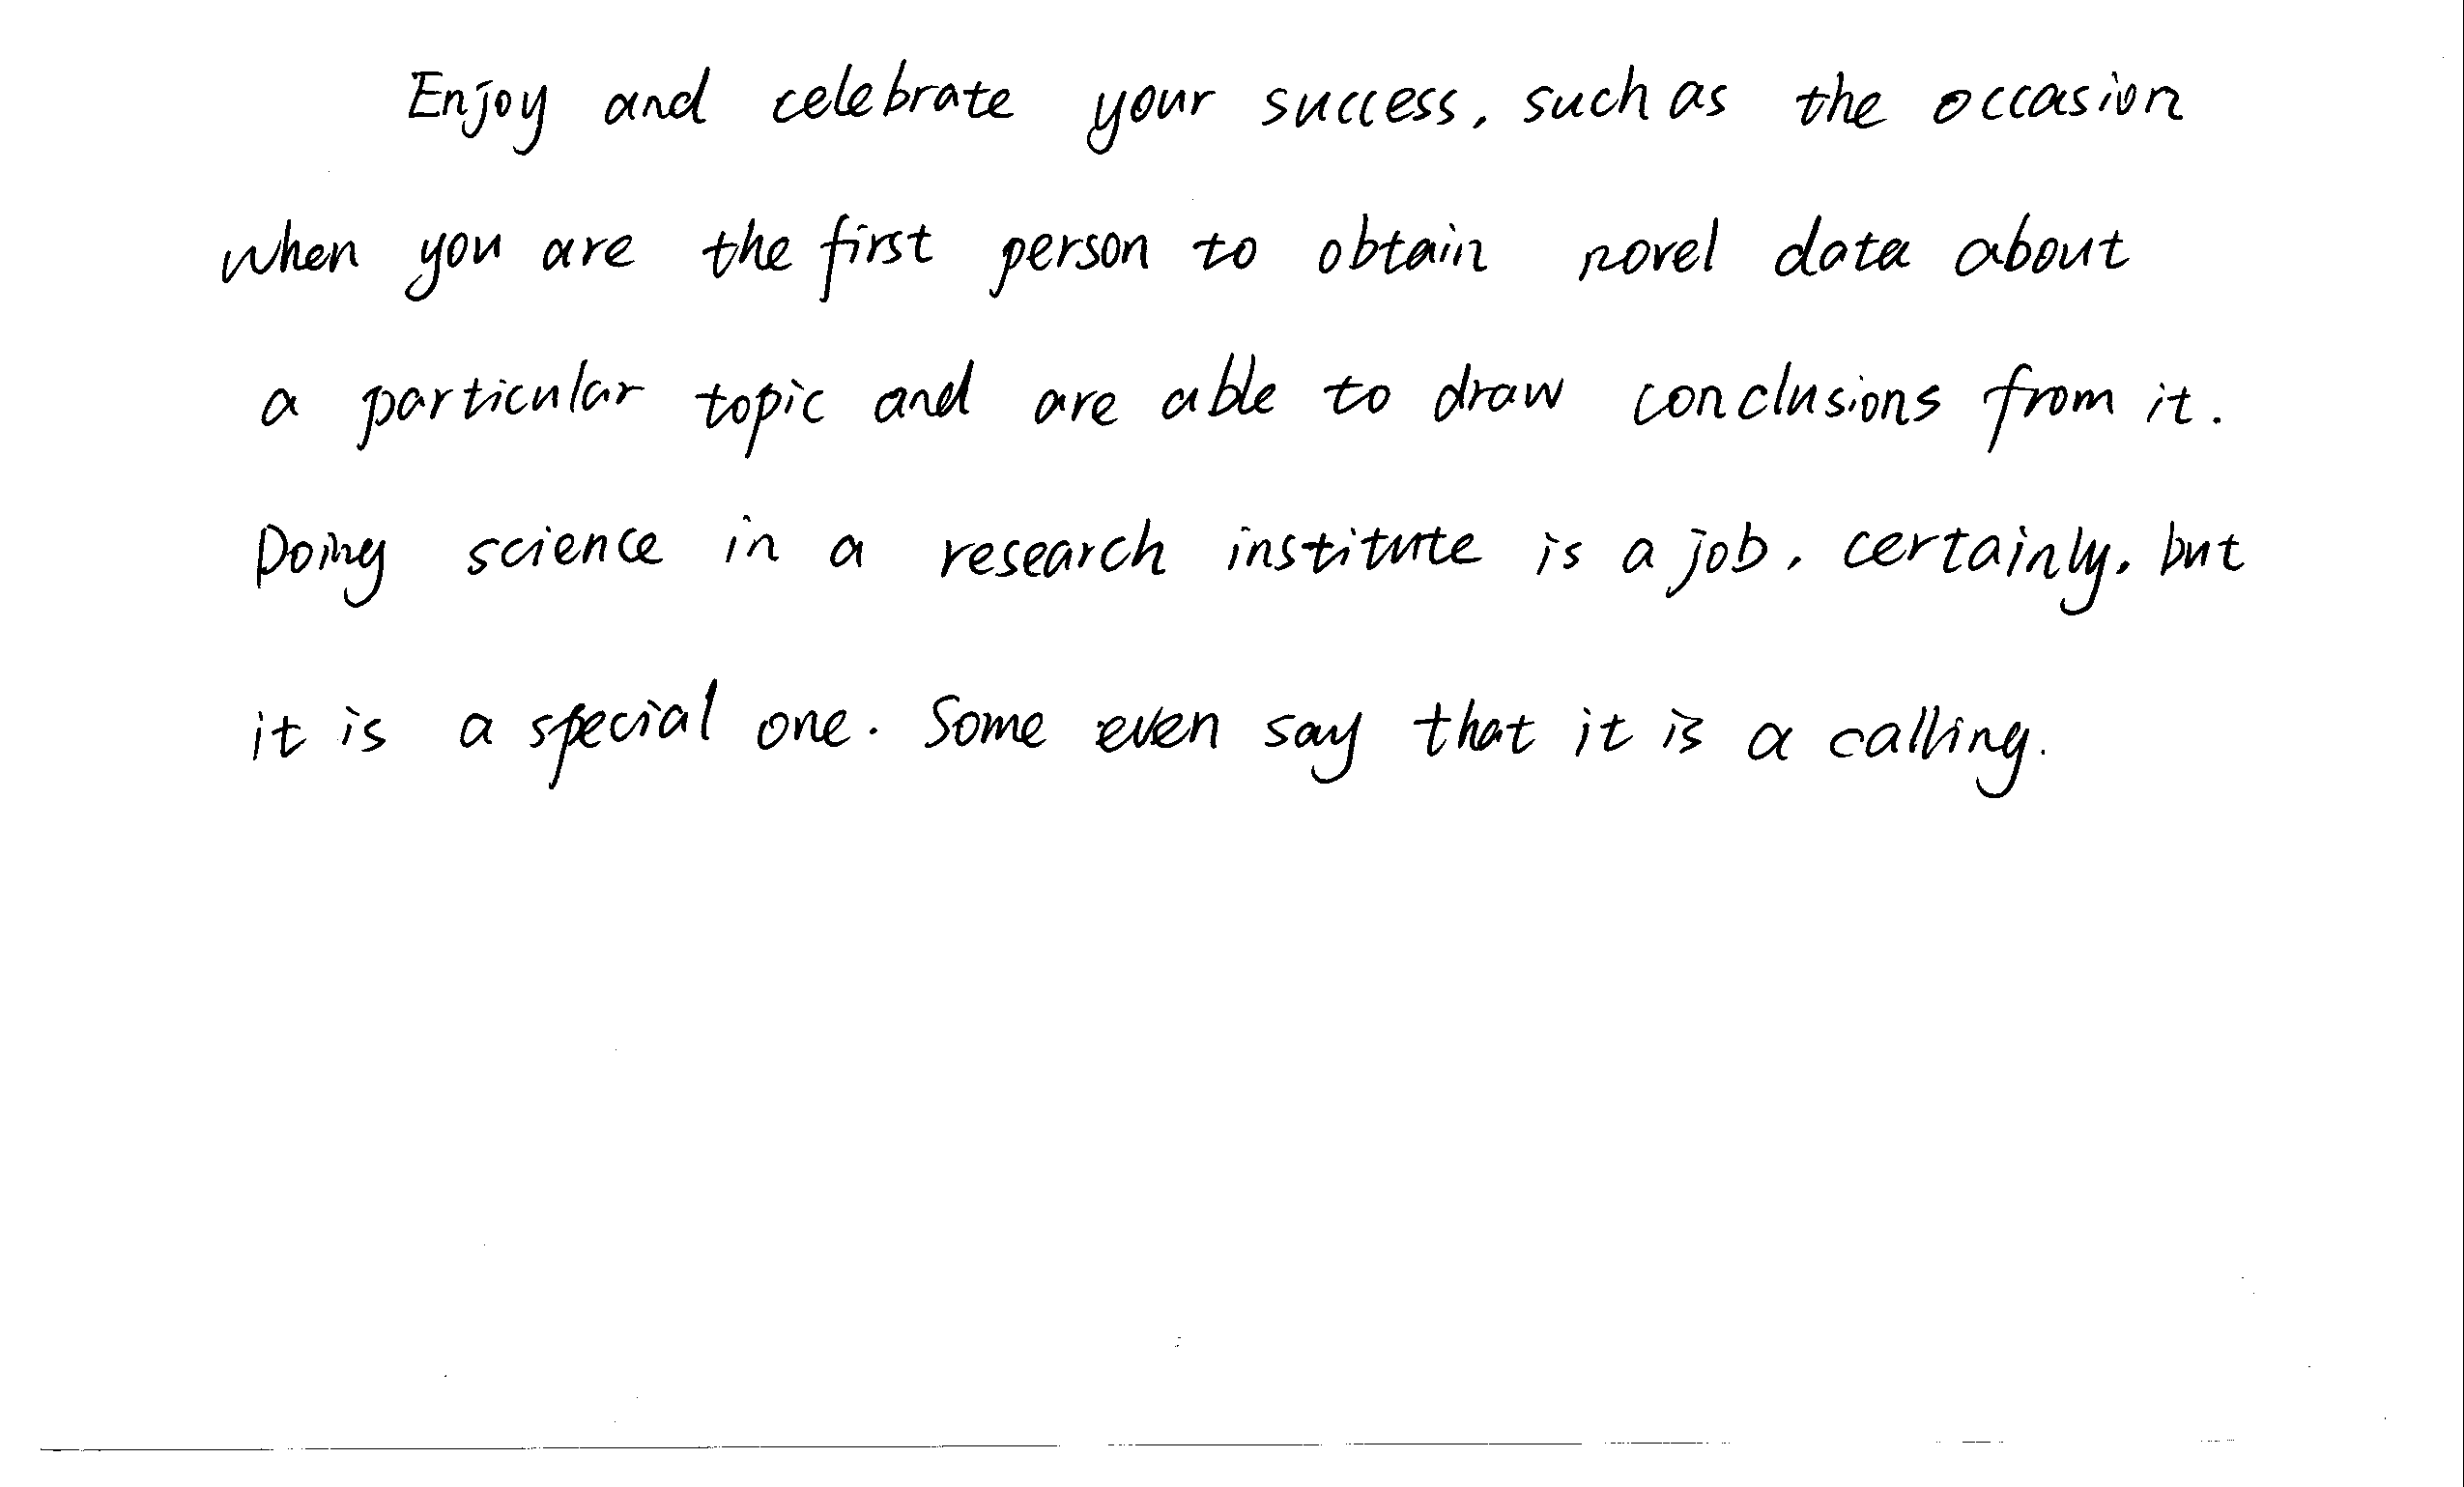 Enjoy and celebrate your success, such as the occasion
when you are the first person to obtain novel data about
a particular topic and are able to draw conclusions from it.
Doing science in a research institute is a job, certainly, but
it is a special one. Some even say that it is a calling.